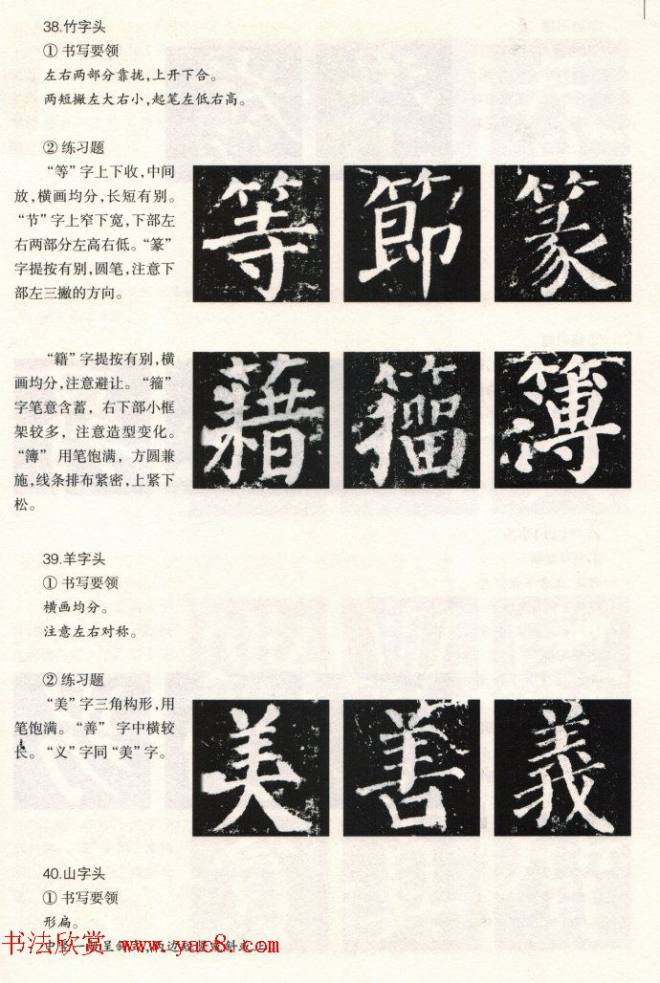 38.竹字头
① 书写要领
左右两部分靠拢,上开下合。
两短撇左大右小,起笔左低右高。
② 练习题
“等”字上下收,中间
放,横画均分,长短有别。
“节”字上窄下宽,下部左
右两部分左高右低。“篆”
字提按有别,圆笔,注意下
部左三撇的方向。
等 節 篆
“籍”字提按有别,横
画均分,注意避让。“籀”
字笔意含蓄，右下部小框
架较多，注意造型变化。
“簿” 用笔饱满，方圆兼
施,线条排布紧密,上紧下
松。
簿
39.羊字头
① 书写要领
横画均分。
注意左右对称。
② 练习题
“美”字三角构形,用
笔饱满。“善” 字中横较
长。“义”字同“美”字。
美 善 義
40.山字头
① 书写要领
形扁。
书法欣赏 www.yac8.com